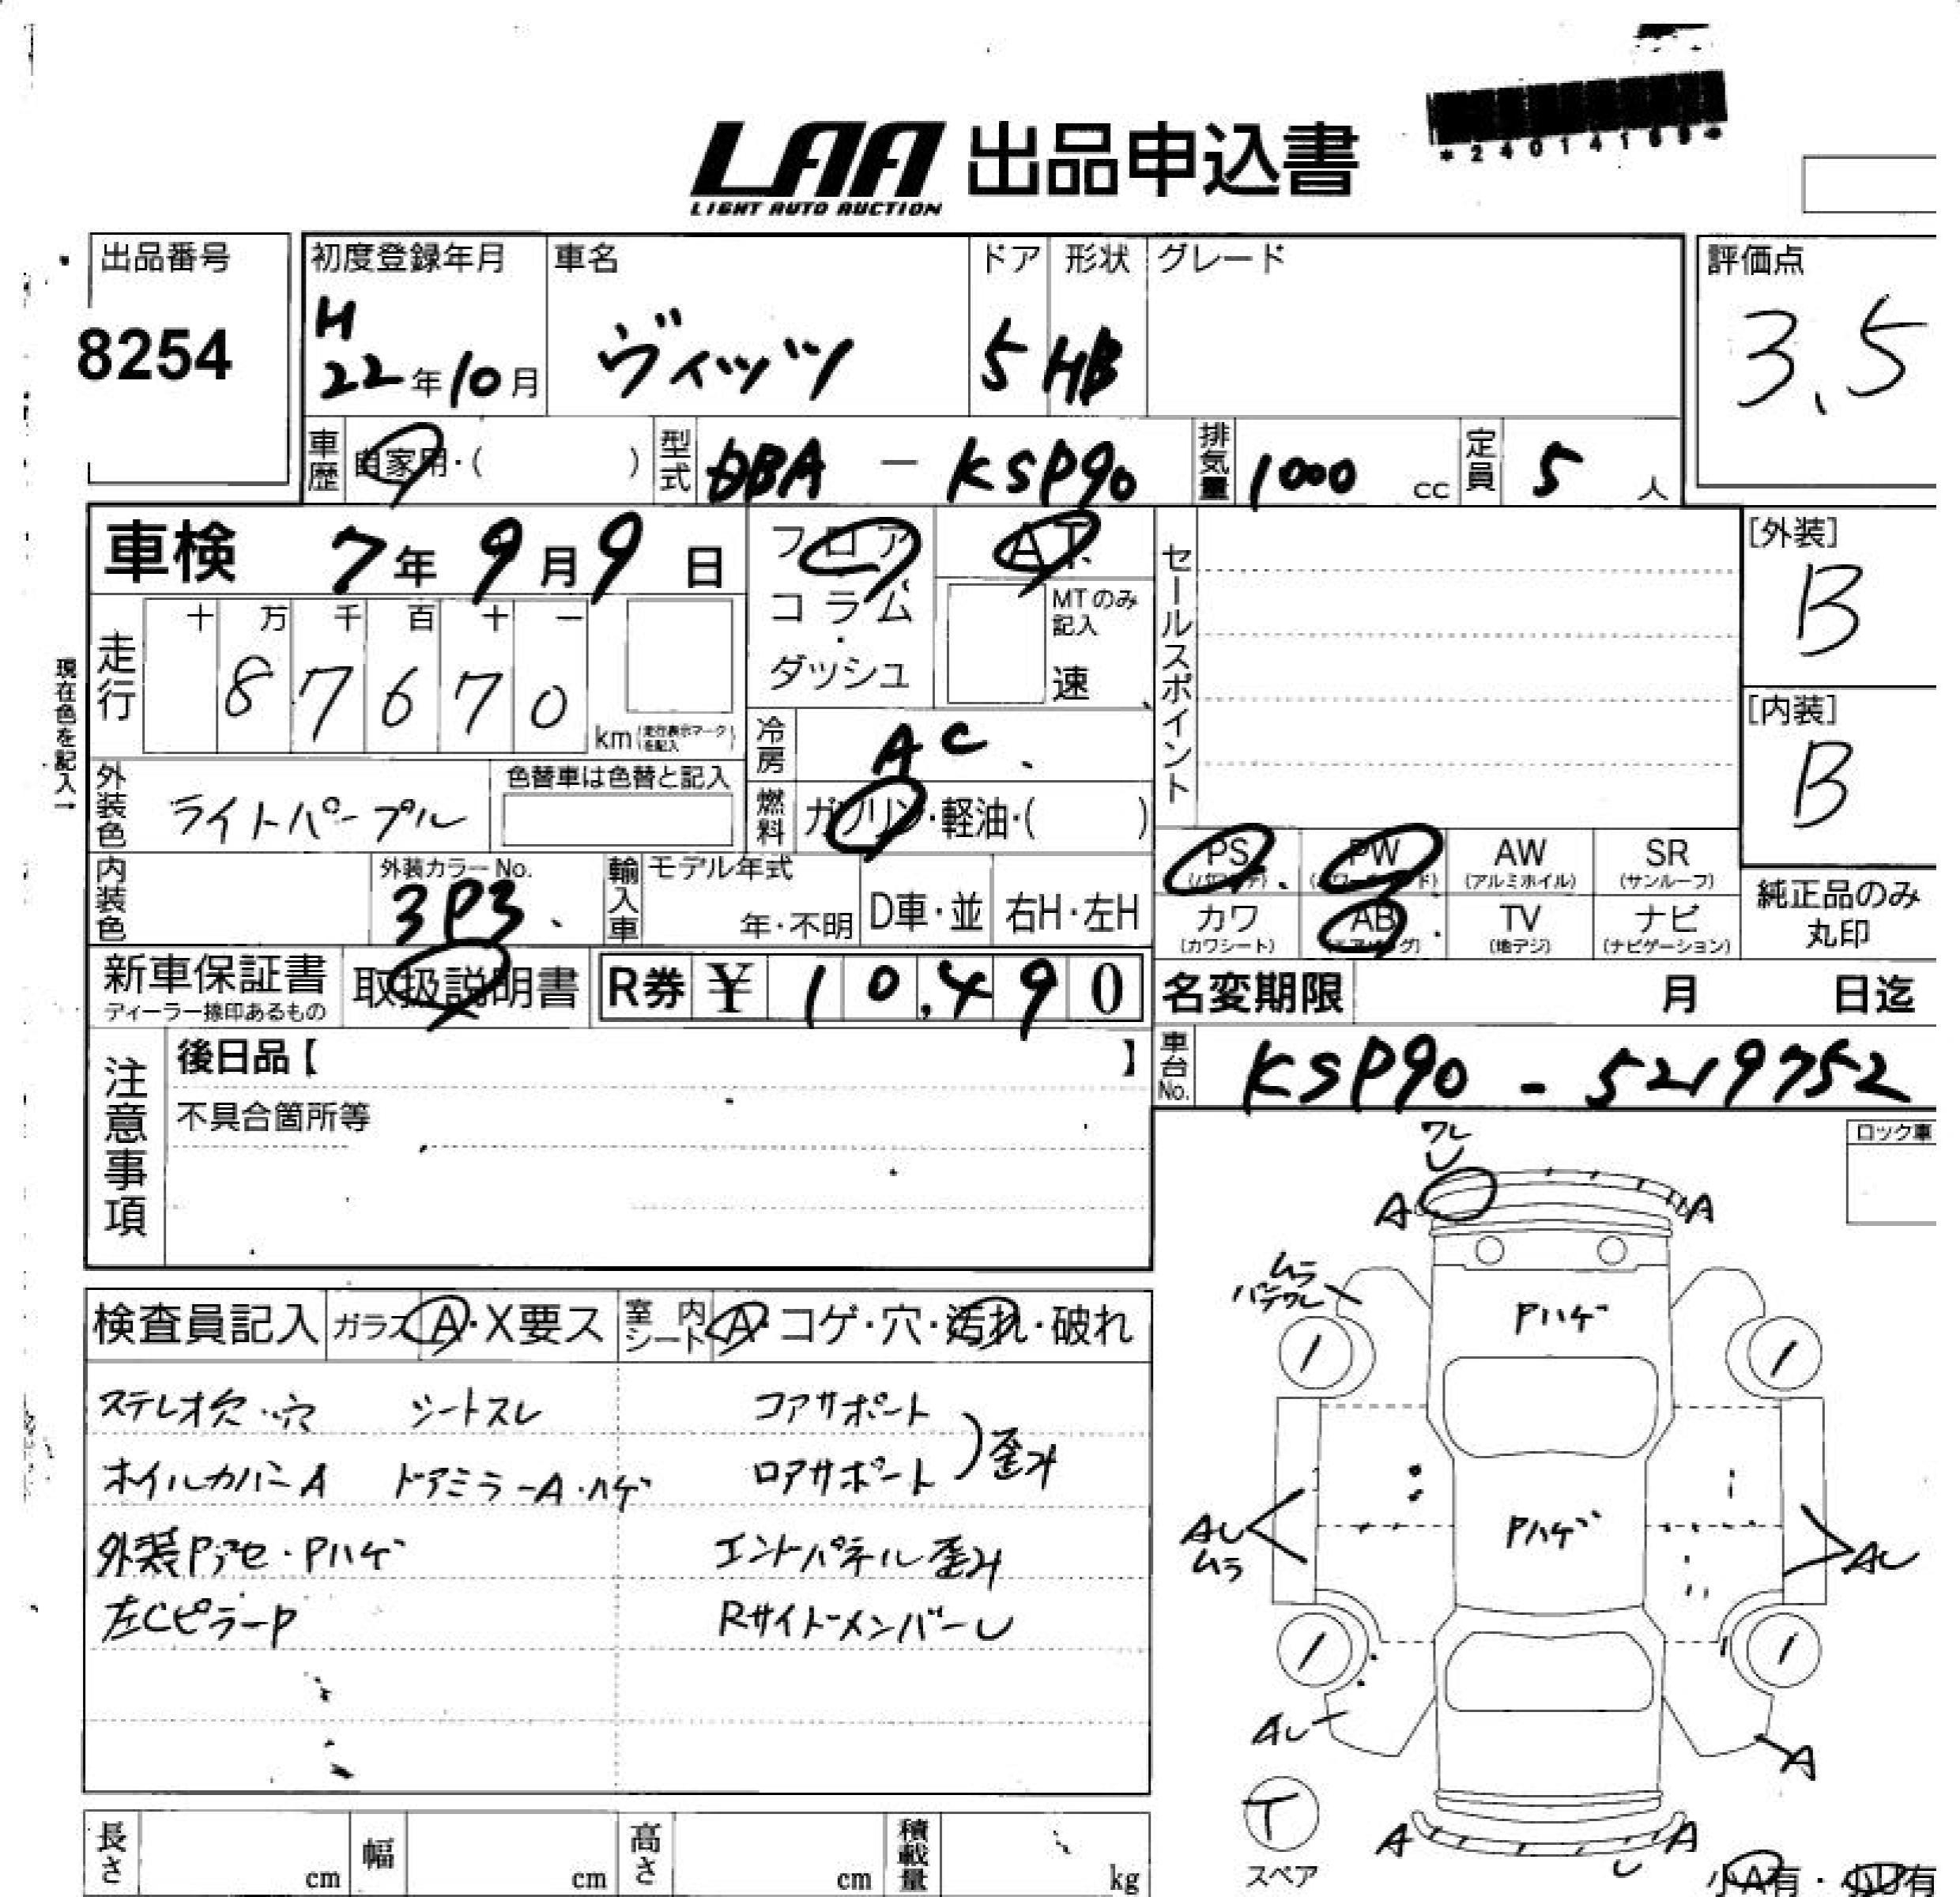 LAA 出品申込書
LIGHT AUTO AUCTION
*24014168*
出品番号
8254
初度登録年月
H
22年10月
車名
ヴィッツ
ドア
5
形状
HB
グレード
評価点
3.5
車歴
自家用・( )
型式
DBA - KSP90
排気量
1000 cc
定員
5 人
車検 7年9月9日
フロア
コラム
・
ダッシュ
AT
MTのみ
記入
速
セールスポイント
[外装]
B
[内装]
B
現在色を記入→
走行
十 万 千 百 十 一
8 7 6 7 0
km (走行表示マークを記入)
冷房
AC
外装色
ライトパープル
色替車は色替と記入
燃料
ガソリン・軽油・( )
PS
(パワステ)
PW
(パワーウインド)
AW
(アルミホイル)
SR
(サンルーフ)
内装色
外装カラーNo.
3P3
輸入車
モデル年式
年・不明
D車・並
右H・左H
カワ
(カワシート)
AB
(エアバッグ)
TV
(地デジ)
ナビ
(ナビゲーション)
純正品のみ
丸印
新車保証書
ディーラー捺印あるもの
取扱説明書
R券 ¥ 10,490
名変期限 月 日迄
車台No.
KSP90 - 5219752
注意事項
後日品【 】
不具合箇所等
ロック車
検査員記入
ガラス
A・X要ス
室内シート
A・コゲ・穴・汚れ・破れ
ステレオ欠・穴 シートスレ
コアサポート
ロアサポート
)歪み
ホイルカバーA ドアミラーA・ハゲ
外装Pアセ・Pハゲ
エンドパネル歪み
左CピラーP
RサイドメンバーU
ワレ
U
A
A
ムラ
パテワレ
Pハゲ
Pハゲ
AU
ムラ
AU
AU
A
T
スペア
A
A
U
小A有・小U有
長さ cm
幅 cm
高さ cm
積載量 kg